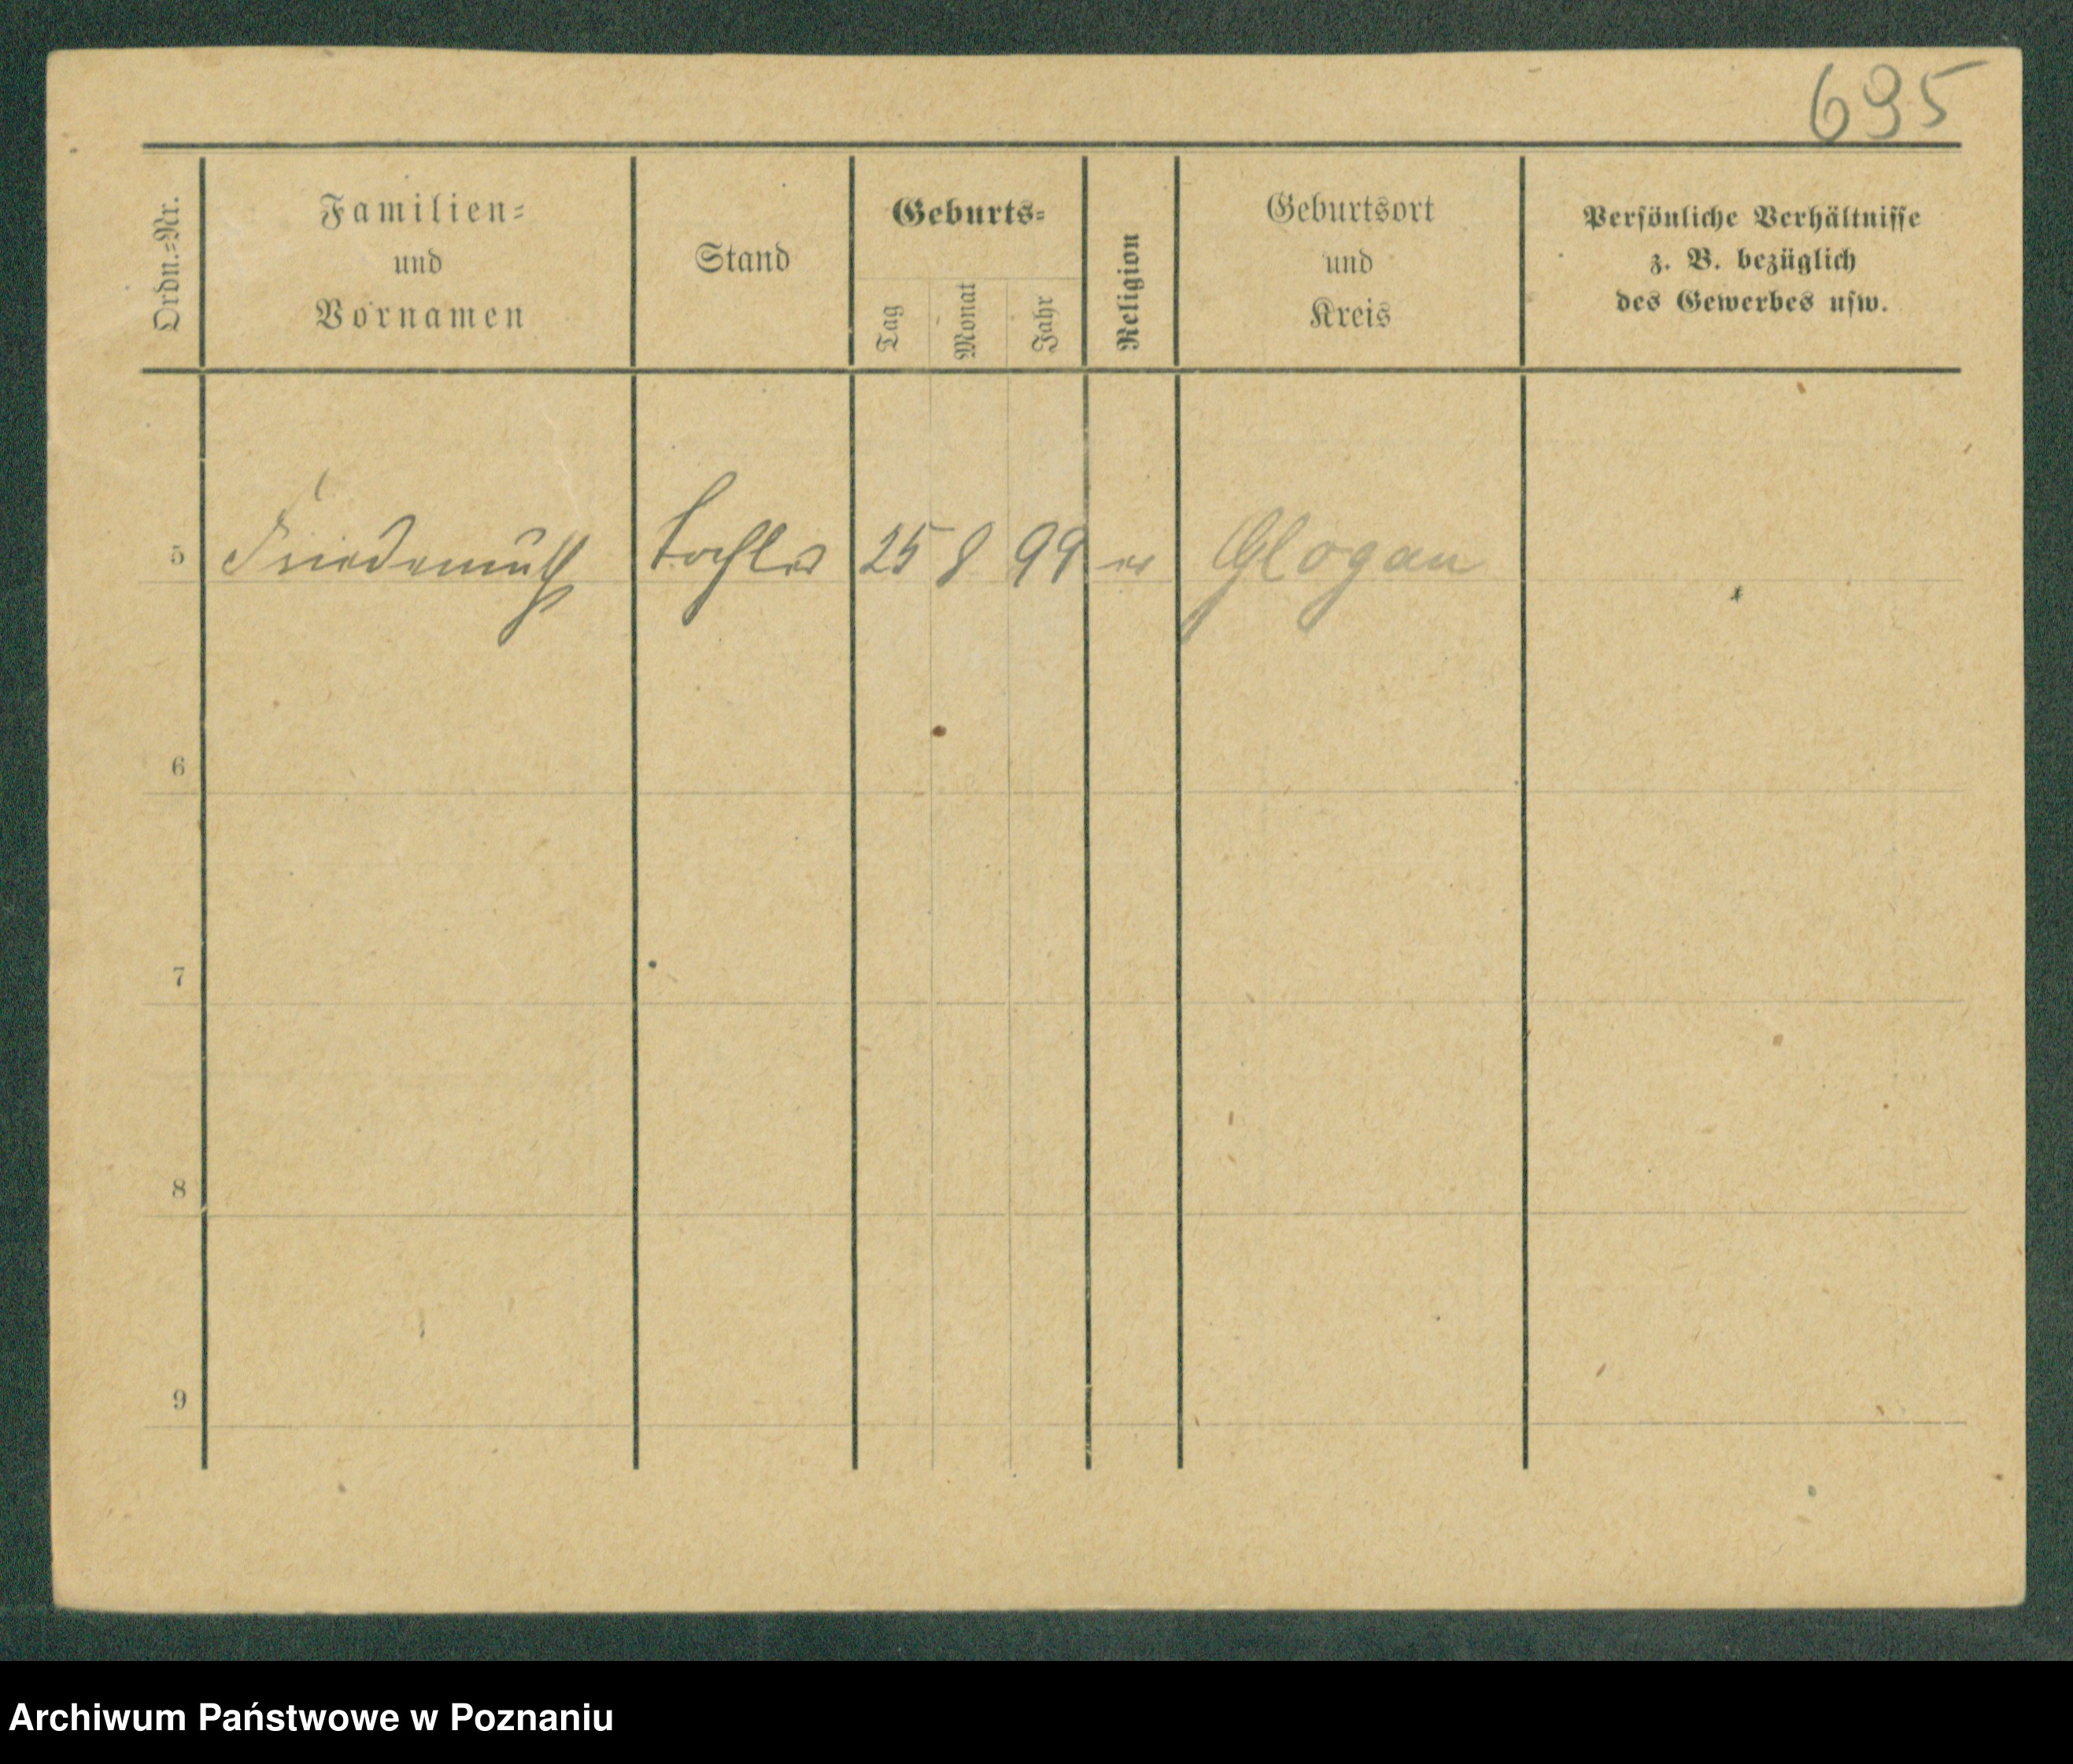 695
Ordn.-Nr.
Familien-
und
Vornamen
Stand
Geburts-
Tag
Monat
Jahr
Religion
Geburtsort
und
Kreis
Persönliche Verhältnisse
z. B. bezüglich
des Gewerbes usw.
5 Friedemuth Tochter 25 8 99 Glogau
6
7
8
9
Archiwum Państwowe w Poznaniu